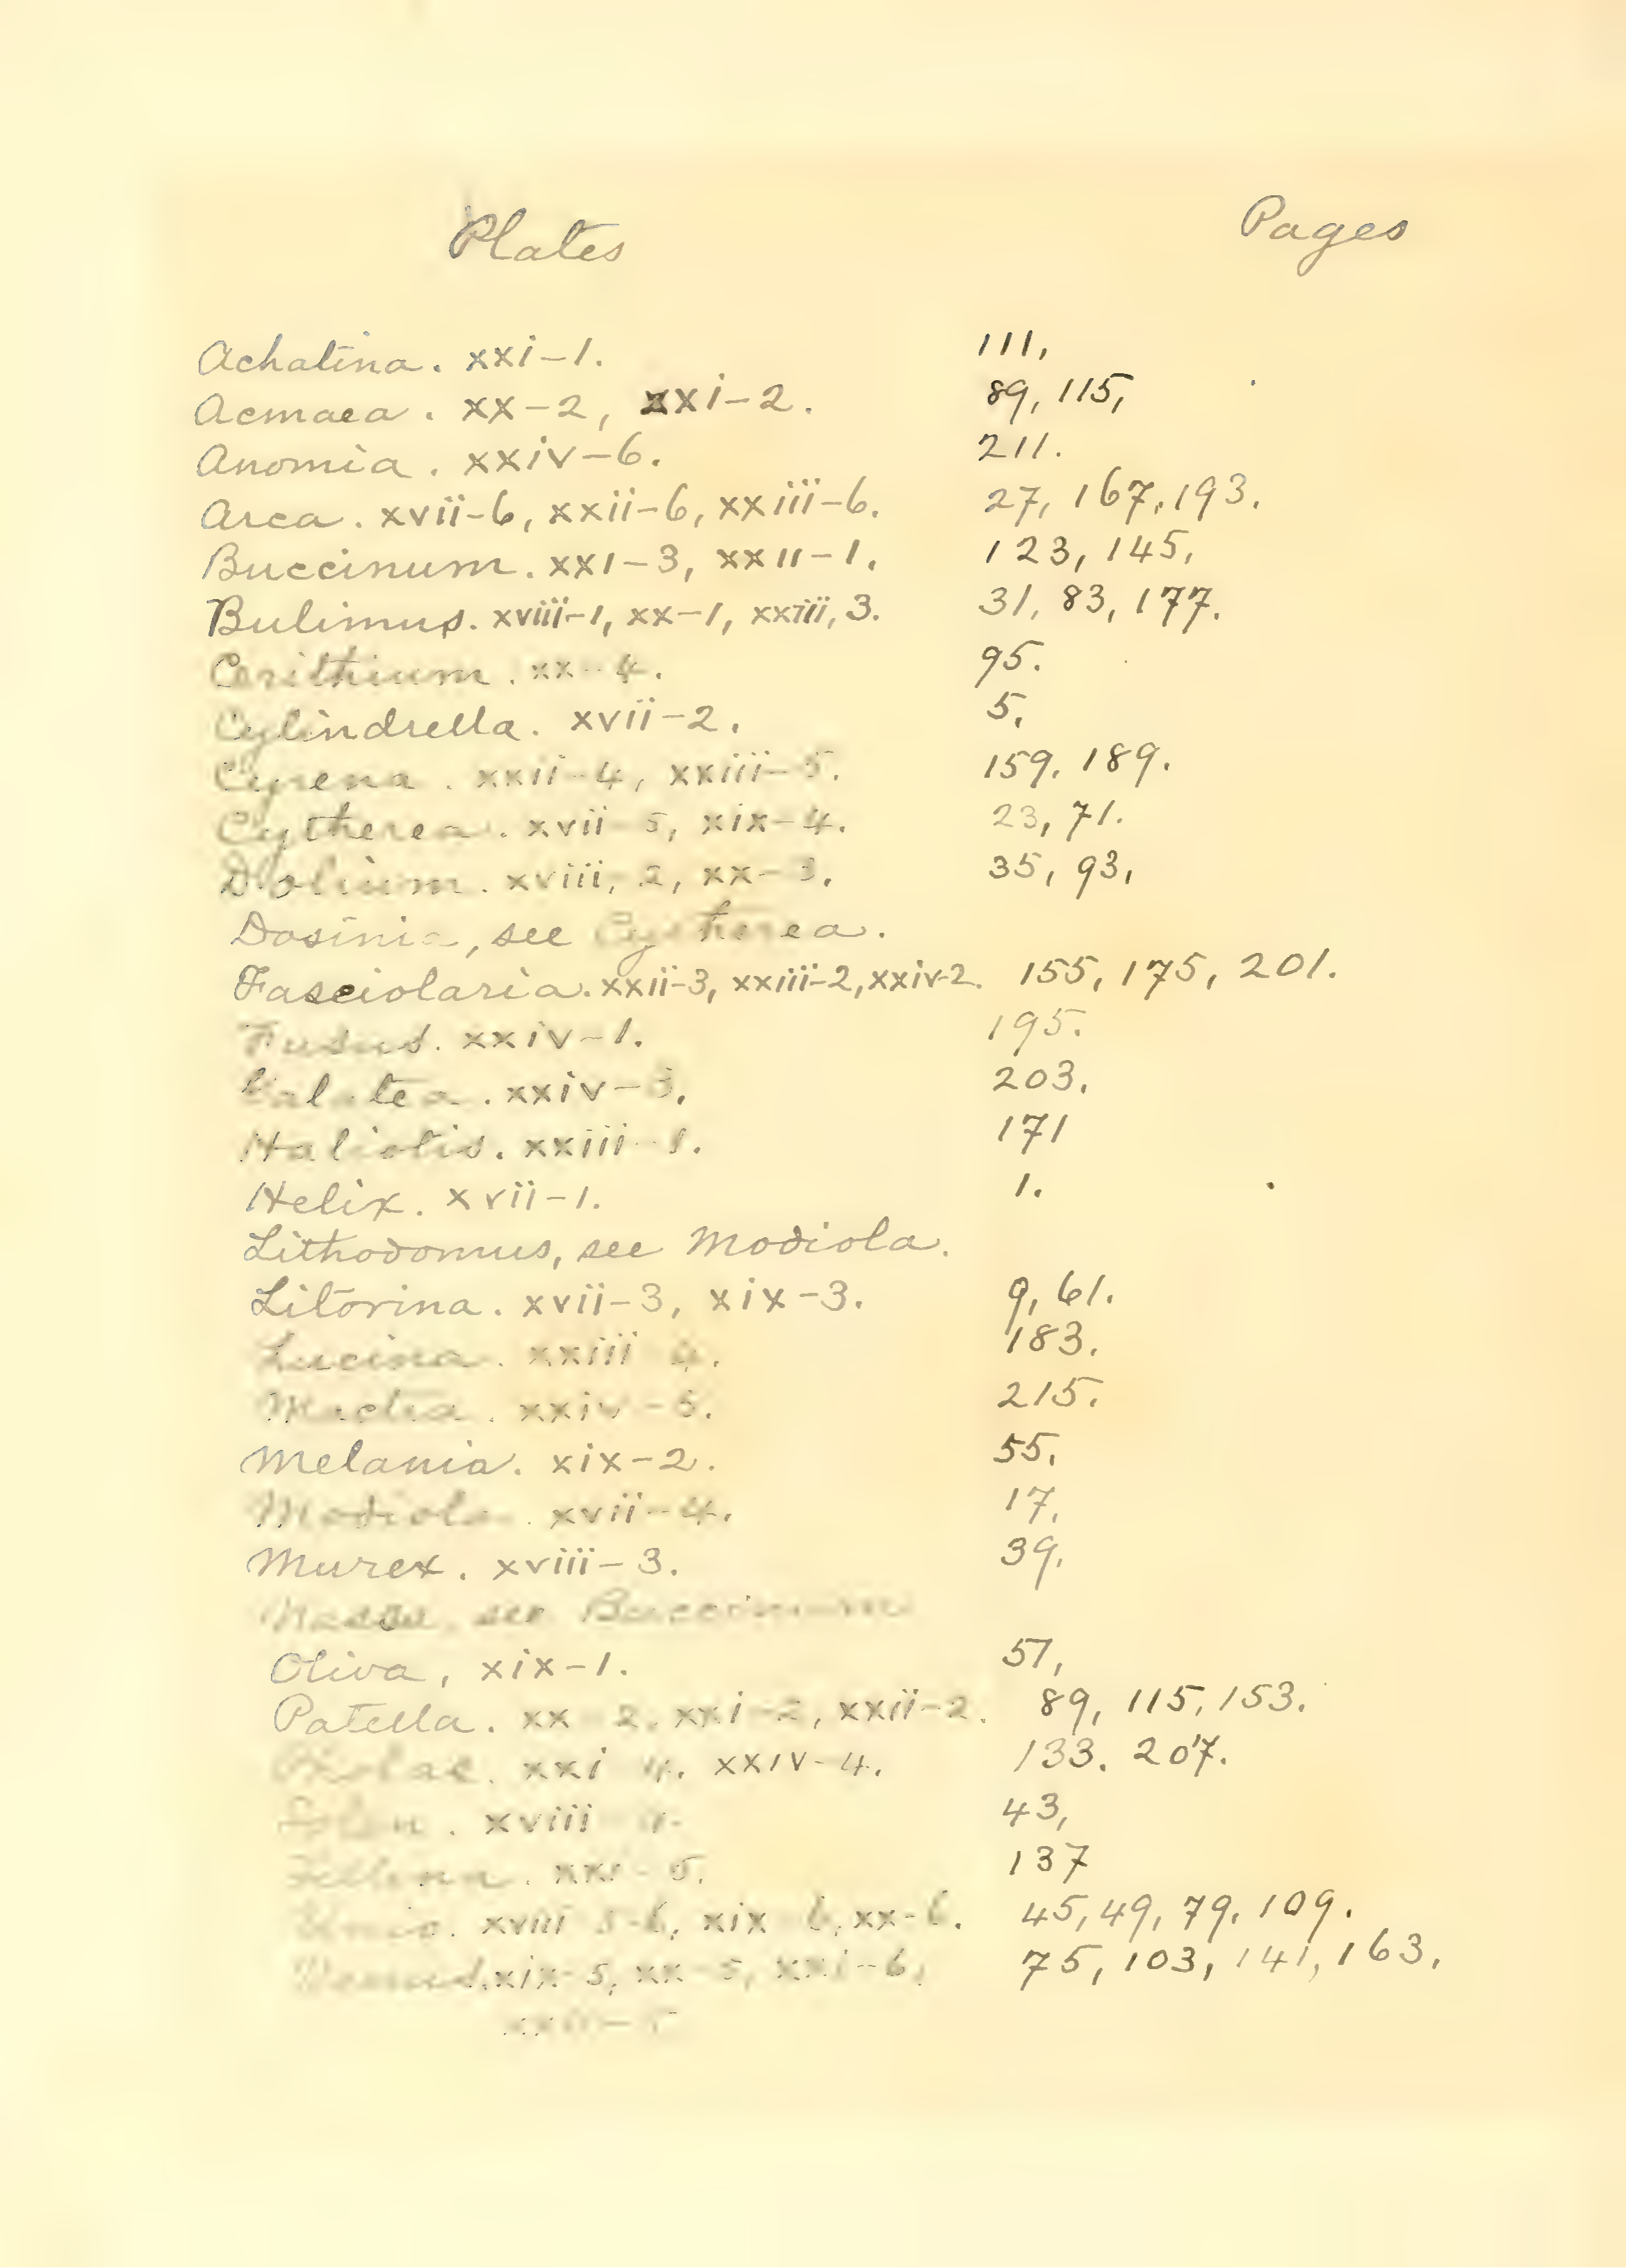 Plates Pages
Achatina. xxi-1. 111,
Acmaea. xx-2, xxi-2. 89, 115,
Anomia. xxiv-6. 211.
Arca. xvii-6, xxii-6, xxiii-6. 27, 167, 193.
Buccinum. xxi-3, xxii-1. 123, 145,
Bulimus. xviii-1, xx-1, xxiii, 3. 31, 83, 177.
Cerithium. xx-4. 95.
Cylindrella. xvii-2. 5,
Cyrena. xxii-4, xxiii-5. 159, 189.
Cytherea. xvii-5, xix-4. 23, 71.
Dolium. xviii, 2, xx-3, 35, 93,
Dosinia, see Cytherea.
Fasciolaria. xxii-3, xxiii-2, xxiv-2. 155, 175, 201.
Fusus. xxiv-1. 195.
Galatea. xxiv-3, 203,
Haliotis. xxiii-1. 171
Helix. xvii-1. 1.
Lithodomus, see Modiola.
Litorina. xvii-3, xix-3. 9, 61.
Lucina. xxiii 4. 183.
Mactra. xxiv-5. 215.
Melania. xix-2. 55,
Modiola. xvii-4. 17,
Murex. xviii-3. 39,
Nassa, see Buccinum
Oliva, xix-1. 51,
Patella. xx-2, xxi-2, xxii-2. 89, 115, 153.
Pholas. xxi 4. xxiv-4. 133. 207.
Solen. xviii 4. 43,
Tellina. xxi-5. 137
Unio. xviii 5-6, xix 6, xx-6. 45, 49, 79, 109.
Venus. xix-5, xx-5, xxi-6, 75, 103, 141, 163,
xxii-5